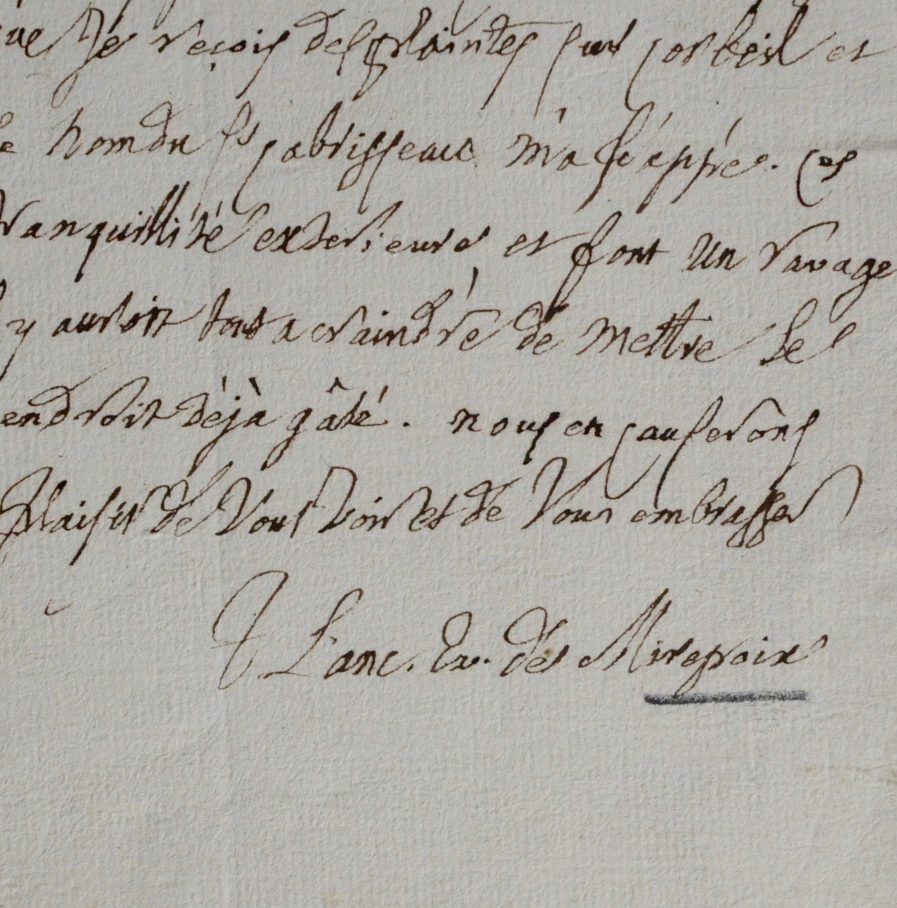 que Je reçois des plaintes sur corbeil et
le nom du Sr cabrisseau m'a frappé. ces
tranquillité exterieure et font un ravage
y auroit tout a craindre de mettre le
endroit déjà gâté. nous en causerons
plaisir de vous voir et de vous embrasser
† L'anc. Ev. de Mirepoix